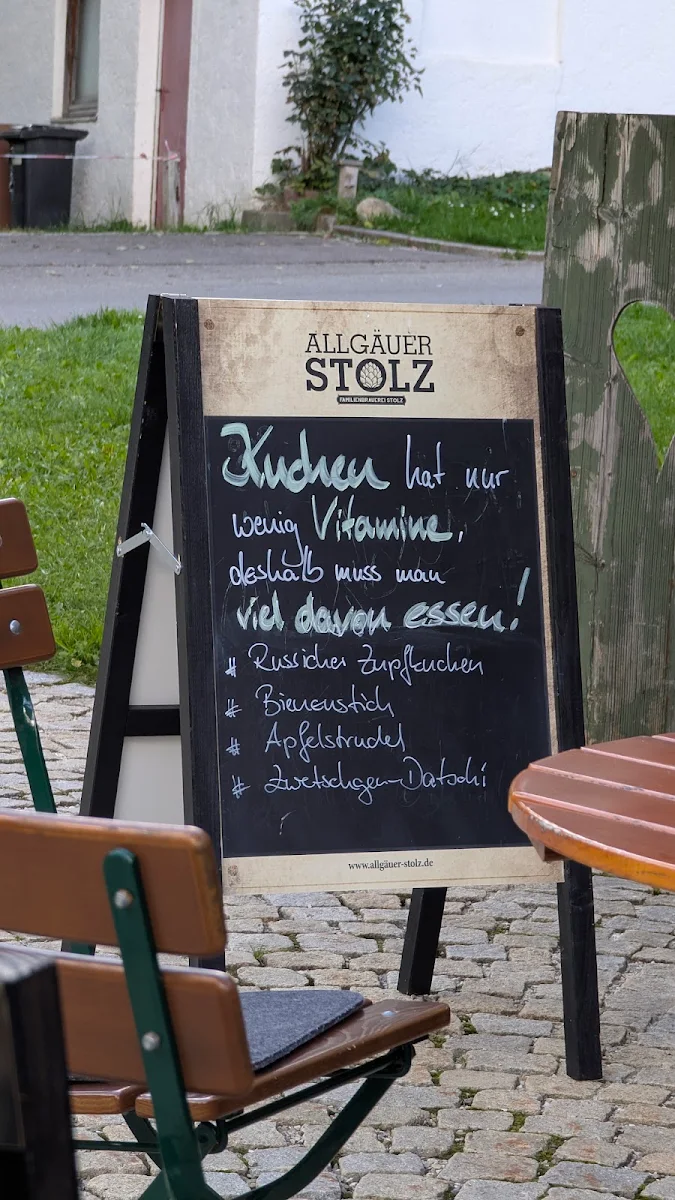 ALLGÄUER
STOLZ
FAMILIENBRAUEREI STOLZ
Kuchen hat nur
wenig Vitamine,
deshalb muss man
viel davon essen!
# Russicher Zupfkuchen
# Bienenstich
# Apfelstrudel
# Zwetschgen-Datschi
www.allgäuer-stolz.de